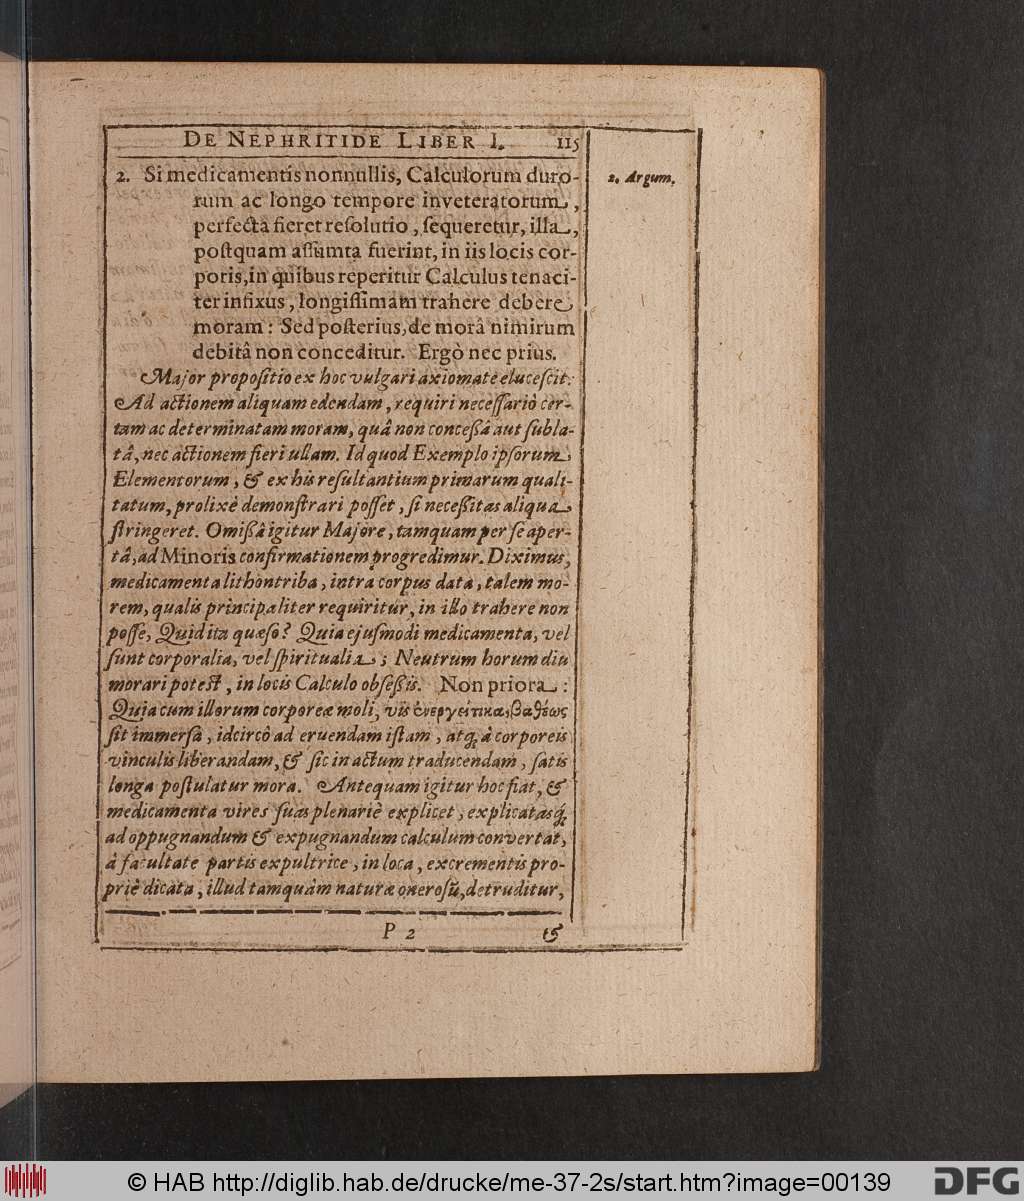 DE NEPHRITIDE LIBER I. 115
2. Argum.
2. Si medicamentis nonnullis, Calculorum duro-
rum ac longo tempore inveteratorum,
perfecta fieret reſolutio, ſequeretur, illa,
poſtquam aſſumta fuerint, in iis locis cor-
poris, in quibus reperitur Calculus tenaci-
ter infixus, longiſſimam trahere debere
moram: Sed poſterius, de morâ nimirum
debitâ non conceditur. Ergò nec prius.
Major propoſitio ex hoc vulgari axiomate eluceſcit:
Ad actionem aliquam edendam, requiri neceſſariò cer-
tam ac determinatam moram, quâ non conceßâ aut ſubla-
tâ, nec actionem fieri ullam. Id quod Exemplo ipſorum
Elementorum, & ex his reſultantium primarum quali-
tatum, prolixè demonſtrari poſſet, ſi neceßitas aliqua
ſtringeret. Omißâ igitur Majore, tamquam per ſe aper-
tâ, ad Minoris confirmationem progredimur. Diximus,
medicamenta lithontriba, intra corpus data, talem mo-
rem, qualis principaliter requiritur, in illo trahere non
poſſe, Quid ita quæſo? Quia ejuſmodi medicamenta, vel
ſunt corporalia, vel ſpiritualia; Neutrum horum diu
morari poteſt, in locis Calculo obſeßis. Non priora:
Quia cum illorum corporeæ moli, vis βαθέως
ſit immerſa, idcircò ad eruendam iſtam, atq; à corporeis
vinculis liberandam, & ſic in actum traducendam, ſatis
longa poſtulatur mora. Antequam igitur hoc fiat, &
medicamenta vires ſuas plenariè explicet, explicatasq́;
ad oppugnandum & expugnandum calculum convertat,
à facultate partis expultrice, in loca, excrementis pro-
priè dicata, illud tamquàm naturæ oneroſũ, detruditur,
P 2 &
© HAB http://diglib.hab.de/drucke/me-37-2s/start.htm?image=00139
DFG